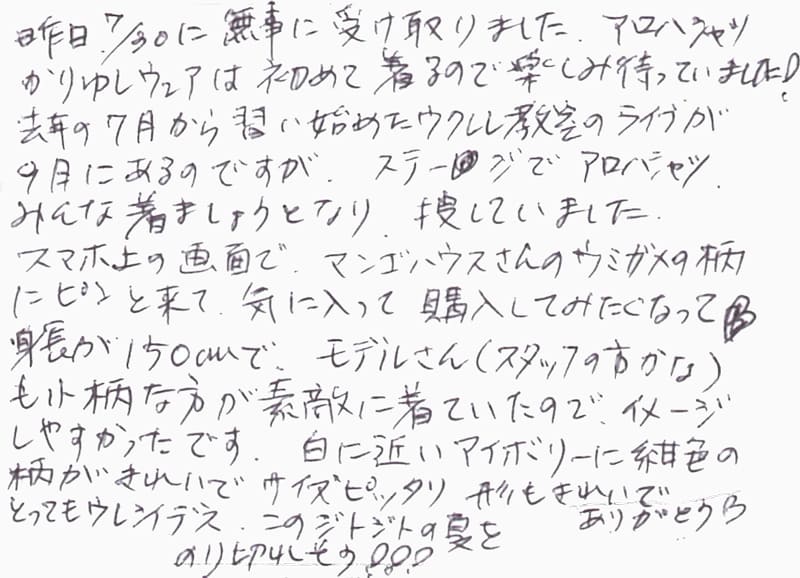 昨日7/30に無事に受け取りました、アロハシャツ
かりゆしウェアは初めて着るので楽しみ待っていました!
去年の7月から習い始めたウクレレ教室のライブが
9月にあるのですが、ステージでアロハシャツ、
みんな着ましょうとなり、捜していました、
スマホ上の画面で、マンゴハウスさんのウミガメの柄
にピンと来て、気に入って購入してみたくなって
身長が150cmで、モデルさん(スタッフの方かな)
も小柄な方が素敵に着ていたので、イメージ
しやすかったです、白に近いアイボリーに紺色の
柄がきれいでサイズピッタリ 形もきれいで
とってもウレシイデス、このジトジトの夏を ありがとう
のり切れしそう!!!